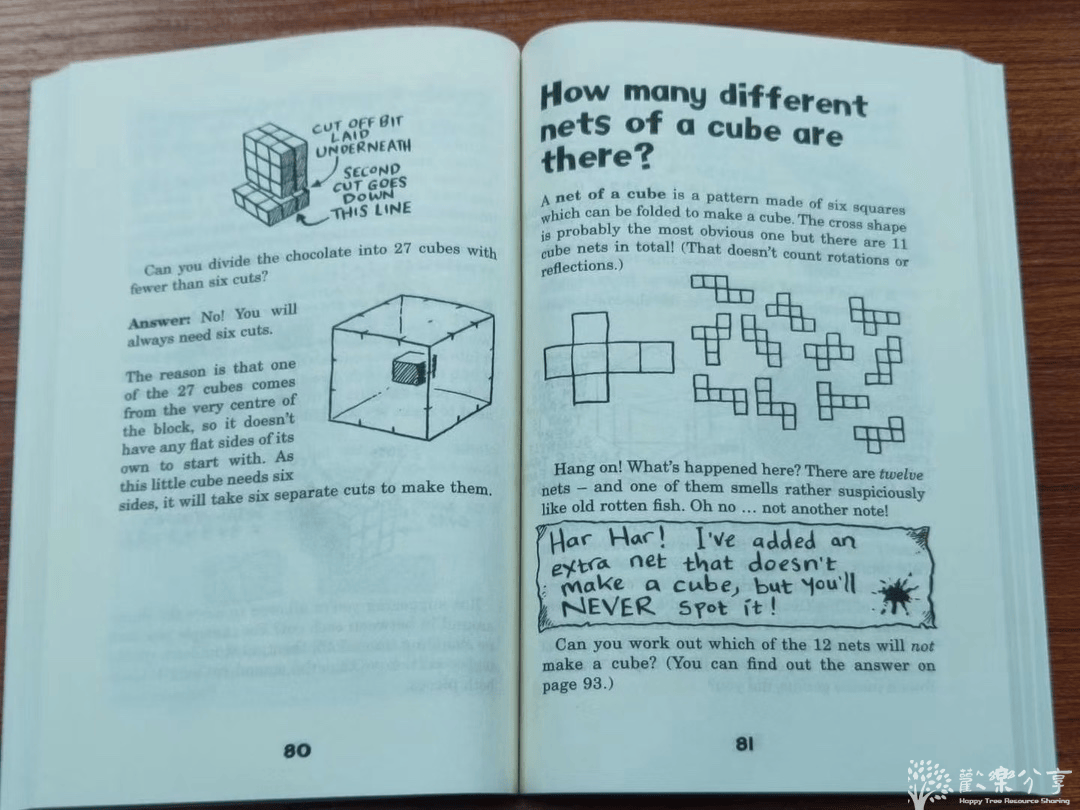 CUT OFF BIT
LAID
UNDERNEATH
SECOND
CUT GOES
DOWN
THIS LINE
Can you divide the chocolate into 27 cubes with
fewer than six cuts?
Answer: No! You will
always need six cuts.
The reason is that one
of the 27 cubes comes
from the very centre of
the block, so it doesn't
have any flat sides of its
own to start with. As
this little cube needs six
sides, it will take six separate cuts to make them.
80
How many different
nets of a cube are
there?
A net of a cube is a pattern made of six squares
which can be folded to make a cube. The cross shape
is probably the most obvious one but there are 11
cube nets in total! (That doesn't count rotations or
reflections.)
Hang on! What's happened here? There are twelve
nets – and one of them smells rather suspiciously
like old rotten fish. Oh no ... not another note!
Har Har! I've added an
extra net that doesn't
make a cube, but you'll
NEVER spot it!
Can you work out which of the 12 nets will not
make a cube? (You can find out the answer on
page 93.)
81
歡樂分享
Happy Tree Resource Sharing